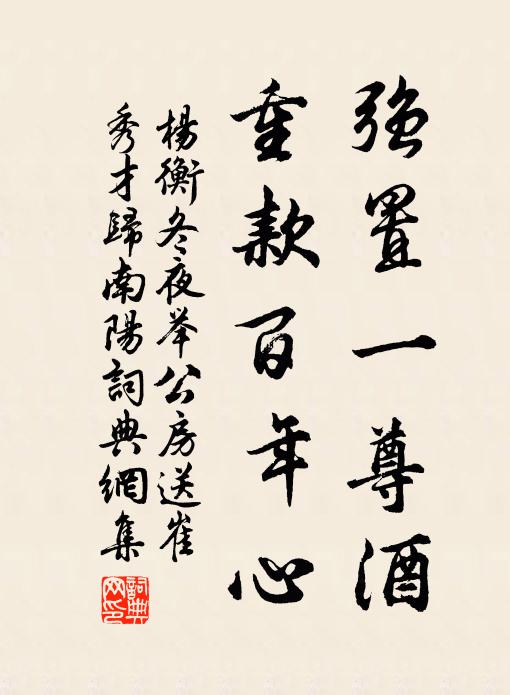 强置一尊酒
重款百年心
杨衡冬夜举公房送崔
秀才歸南陽詞典網集
詞典
网印